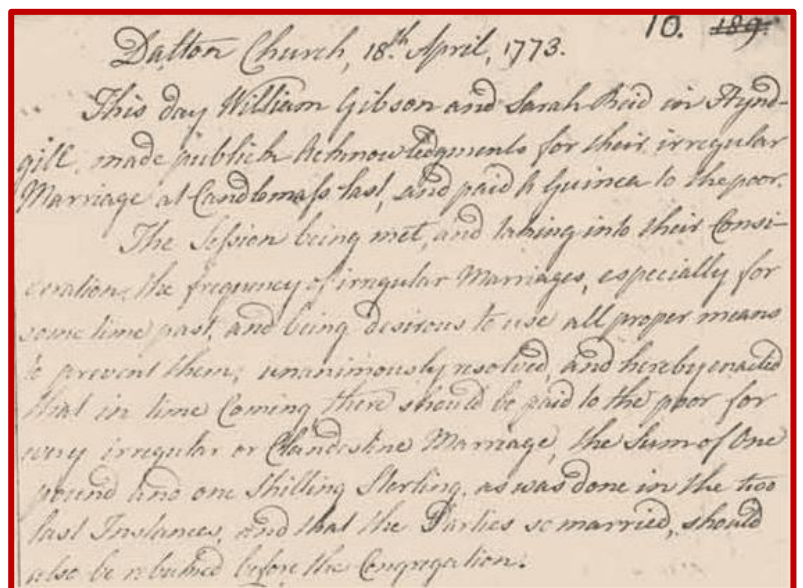 10. 189.
Dalton Church, 18.th April, 1773.
This day William Gibson and Sarah Reid in Hynd-
gill, made publick Acknowledgments for their irregular
Marriage at Candlemass last, and paid a Guinea to the poor.
The Session being met, and taking into their Consi-
eration, the frequency of irregular Marriages, especially for
some time past, and being desirous to use all proper means
to prevent them; unanimously resolved, and hereby enacted
that in time Coming there should be paid to the poor for
every irregular or Clandestine Marriage, the Sum of One
pound and one Shilling Sterling, as was done in the two
last Instances, and that the Parties so married, should
also be rebuked before the Congregation.